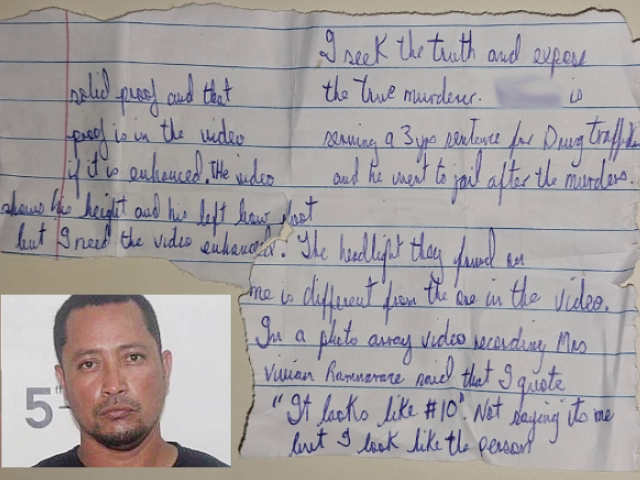 solid proof and that
proof is in the video
if it is enhanced. The video
shows his height and his left bow foot
but I need the video enhanced.
I seek the truth and expose
the true murderer. is
serving a 3 yrs sentence for Drug traffickin
and he went to jail after the murders.
The headlight they found on
me is different from the one in the video.
In a photo array video recording Mrs
Vivian Ramnarace said that I quote
"It looks like #10". Not saying its me
but I look like the person
5'